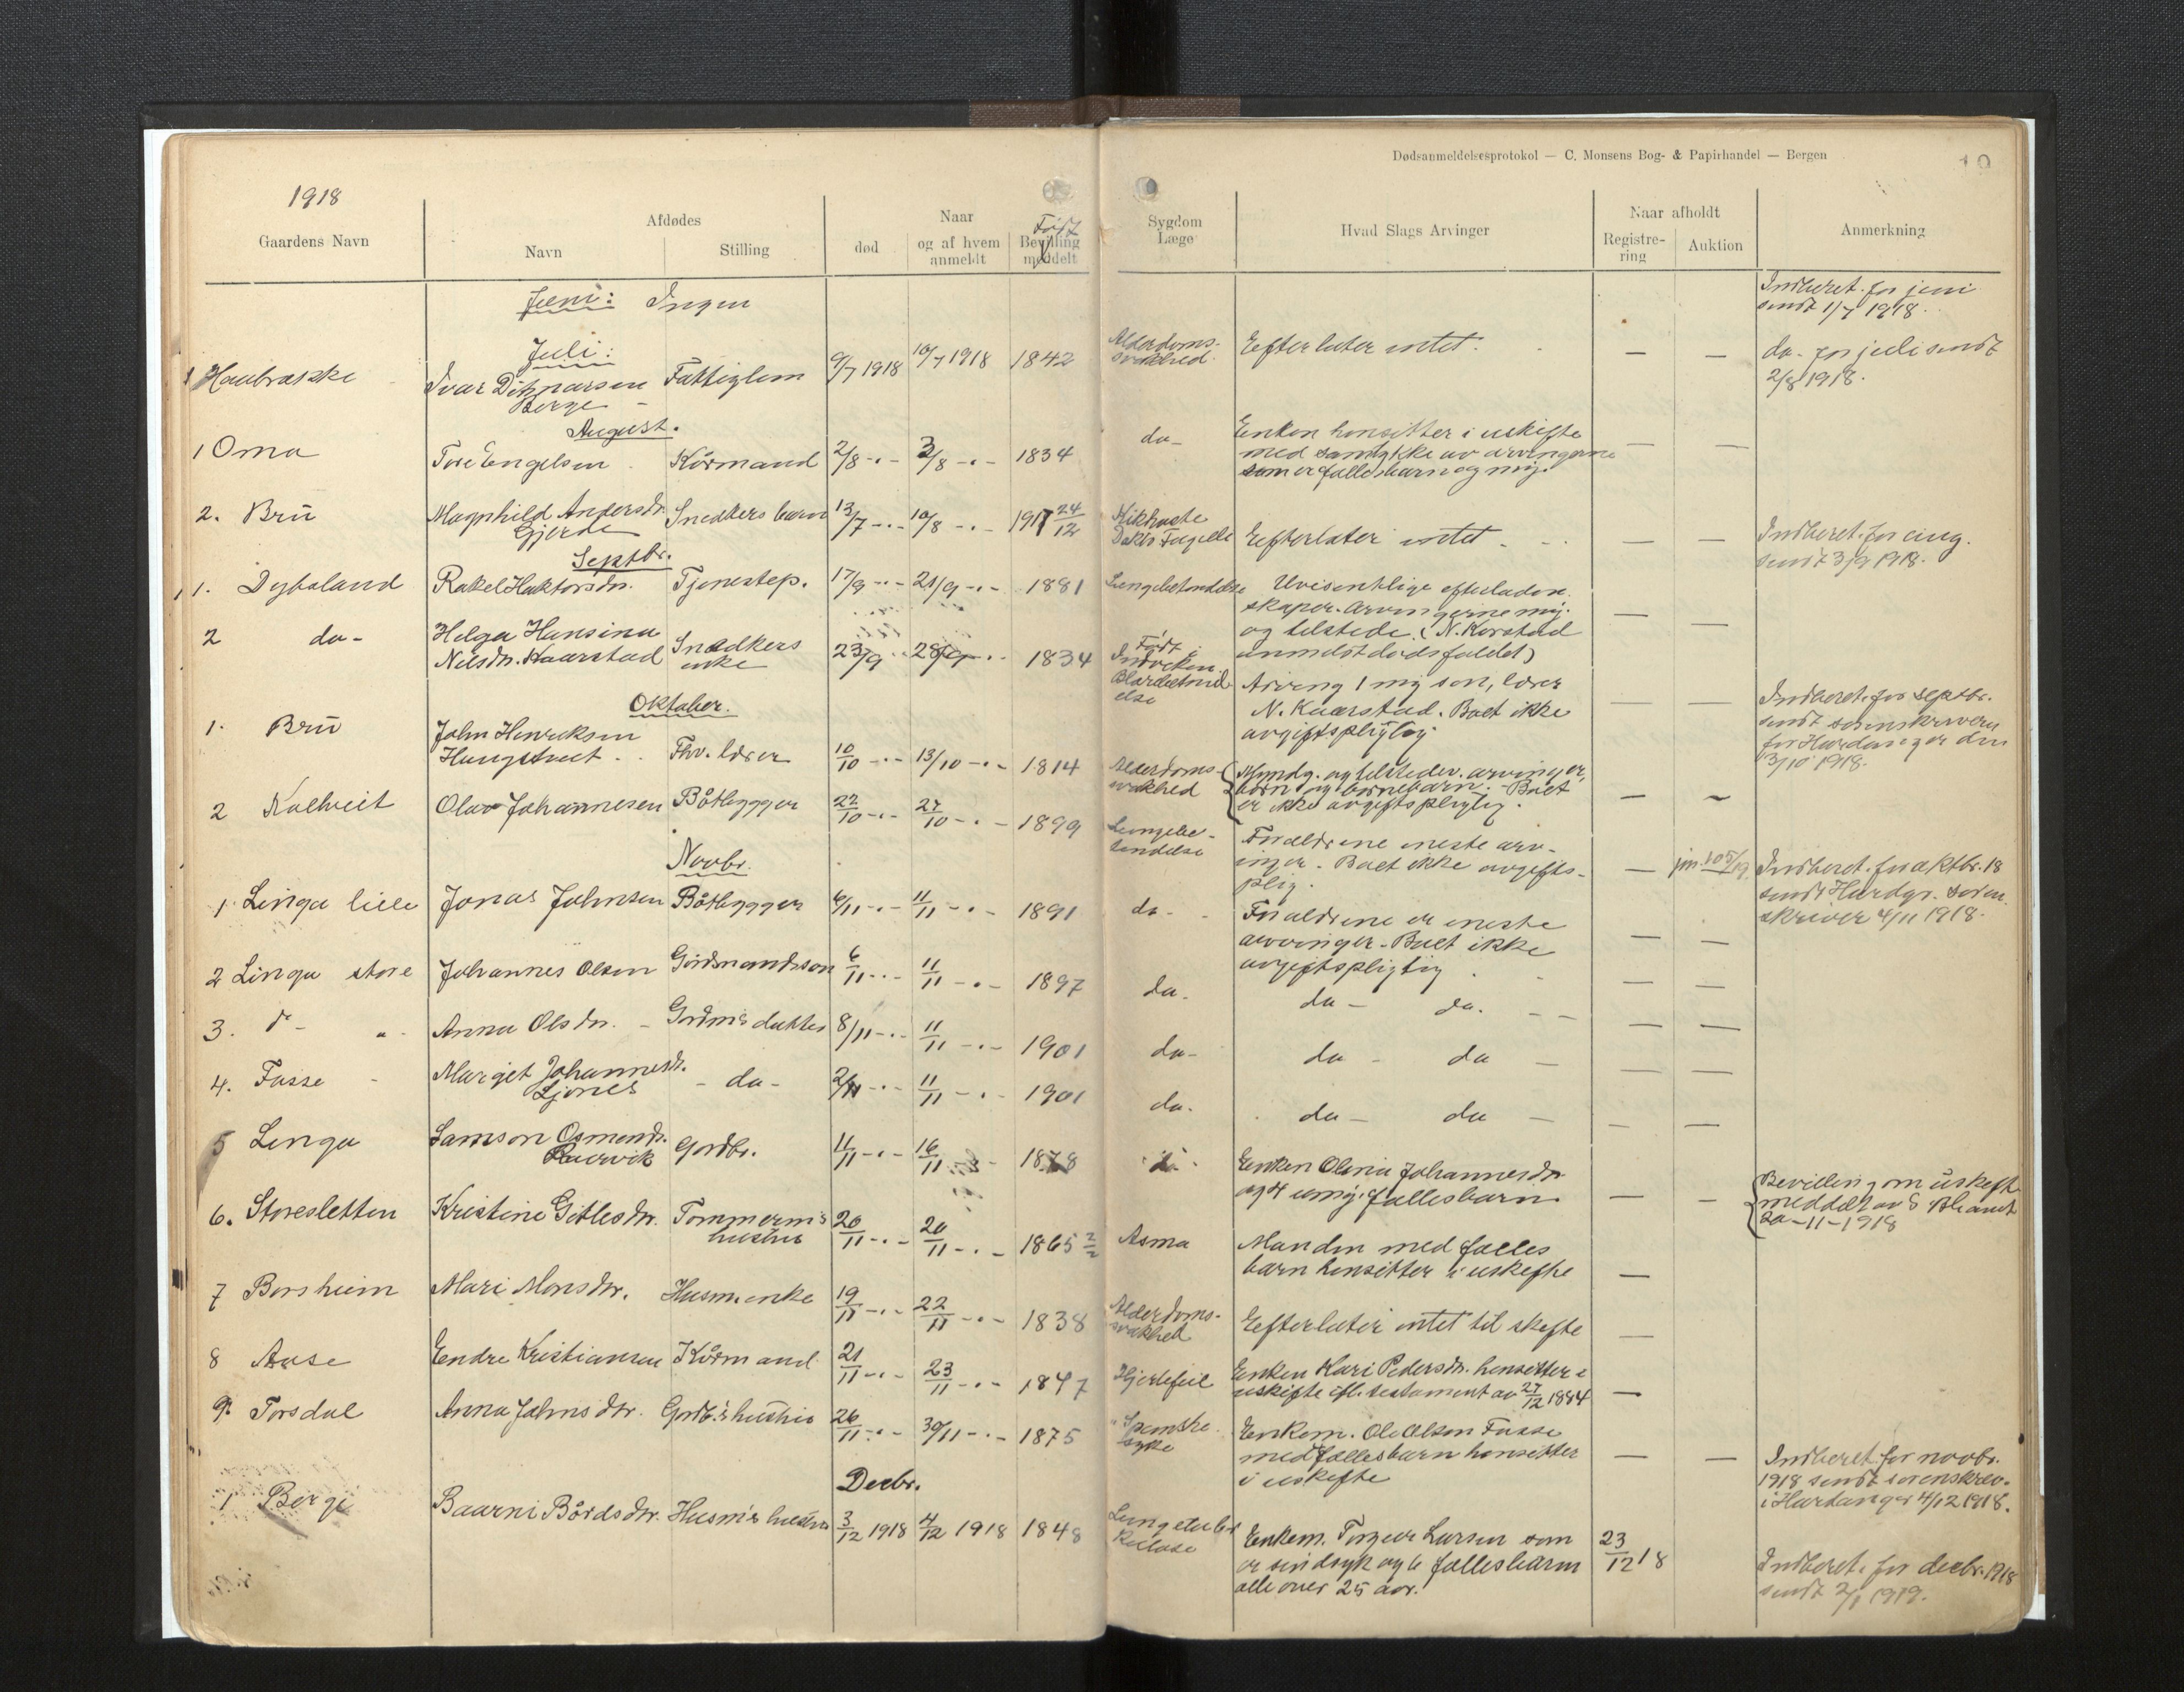 Dødsanmeldelsesprotokol — C. Monsens Bog- & Papirhandel — Bergen
19
1918
Gaardens Navn
Afdødes
Navn
Stilling
Naar
død
og af hvem anmeldt
Født
Bevilling meddelt
Sygdom
Læge
Hvad Slags Arvinger
Naar afholdt
Registrering
Auktion
Anmerkning
Juni: Ingen
Indberet. for juni
sendt 1/7 1918.
Juli:
1 Haubrække Ivar Ditmarsen Berge Fattiglem 9/7 1918 10/7 1918 1842 Alderdoms-svakhed. Efterlater intet. — —
da. for juli sendt
2/8 1918.
August.
1 Oma Tore Engelsen Kårmand 2/8 -"- 3/8 -"- 1834 da-
Enken hensitter i uskifte
med samtykke av arvingerne
som er fællesbarn og myg. — —
2. Bru Magnhild Andersdr. Gjerde Snedkers barn 13/7 -"- 10/8 -"- 1917 24/12 Kikhoste Efterlater intet. — —
Indberet. for aug.
sendt 3/9 1918.
Septbr.
1. Dybsland Rakel Haktorsdr. Tjenestep. 17/9 -"- 21/9 -"- 1881 Lungebetændelse
Uvisentlige efterladen-
skaper. Arvingerne myg.
og tilstede. (N. Korstad
anmeldt dødsfaldet) — —
2 da- Helga Hansina Nilsdr. Kaarstad Snedkers enke 23/9 28/9 -"- 1834 Født i Indviken. Blærebetændelse
Arving 1 myg søn, lærer
N. Kaarstad. Boet ikke
avgiftspligtig. — —
Indberet. for septbr.
sendt sorenskriveren
for Hardanger den
3/10 1918.
Oktober.
1. Bru John Henriksen Haugstveit Fhv. lærer 10/10 -"- 13/10 -"- 1814 Alderdoms-svakhed
Myndg. og tilstedev. arvinger,
børn og børnebarn. - Boet
er ikke avgiftspligtig. — —
2 Kalhveit Olav Johannesen Båtbygger 22/10 -"- 27/10 -"- 1899 Lungebetændelse
Forældrene eneste arv-
inger. Boet ikke avgifts-
plig. —
Indberet. for oktbr. 18
sendt Hardgr. soren-
skriver 4/11 1918.
Novbr.
1. Linga lille Jonas Johnsen Båtbygger 6/11 -"- 11/11 -"- 1891 da-
Forældrene er eneste
arvinger - Boet ikke
avgiftspligtig. — —
2 Linga store Johannes Olsen Gårdmandssøn 6/11 -"- 11/11 -"- 1897 da. da - da. — —
3. d- " Anna Olsdr. Grdmds datter 8/11 -"- 11/11 -"- 1901 da- da - da — —
4. Fosse Marget Johannesdr. Ljones - da- 2/11 -"- 11/11 -"- 1901 da. da - da — —
5 Linga Samson Osmunds. Gardbr. 11/11 -"- 16/11 1878
Enken Olina Johannesdr.
og 4 umyg. fællesbarn. — —
Bevilling om uskift
meddelt av
20-11-1918
6. Storesletten Kristine Gitlesdr. Tømmerm's hustru 20/11 -"- 20/11 -"- 1865 Asma
Manden med fælles
barn hensitter i uskifte —
7 Borsheim Mari Monsdtr. Husm. enke 19/11 -"- 22/11 -"- 1838 Alderdoms-svakhed Efterlater intet til skifte —
8 Aase Endre Kristiansen Kårmand 21/11 -"- 23/11 -"- 1847 Hjertefeil
Enken Kari Pedersdr. hensitter i
uskifte ifl. testament av 27/12 1884 —
9. Torsdal Anna Johnsdtr. Grdb.'s hustru 26/11 -"- 30/11 -"- 1875 "Spanske syke
Enkem. Ole Olsen Fosse
med fællesbarn hensitter
i uskifte — —
Indberet. for novbr.
1918 sendt sorenskriv.
i Hardanger 4/12 1918.
Decbr.
1 Berge Baarni Bårdsdtr. Husm's hustru 3/12 1918 4/12 1918 1848 Lungetuberkulose
Enkem. Torgeir Larsen som
er sindsyk og 6 fællesbarn
alle over 25 aar. 23/12 18
Indberet. for decbr. 1918
sendt 2/1 1919.